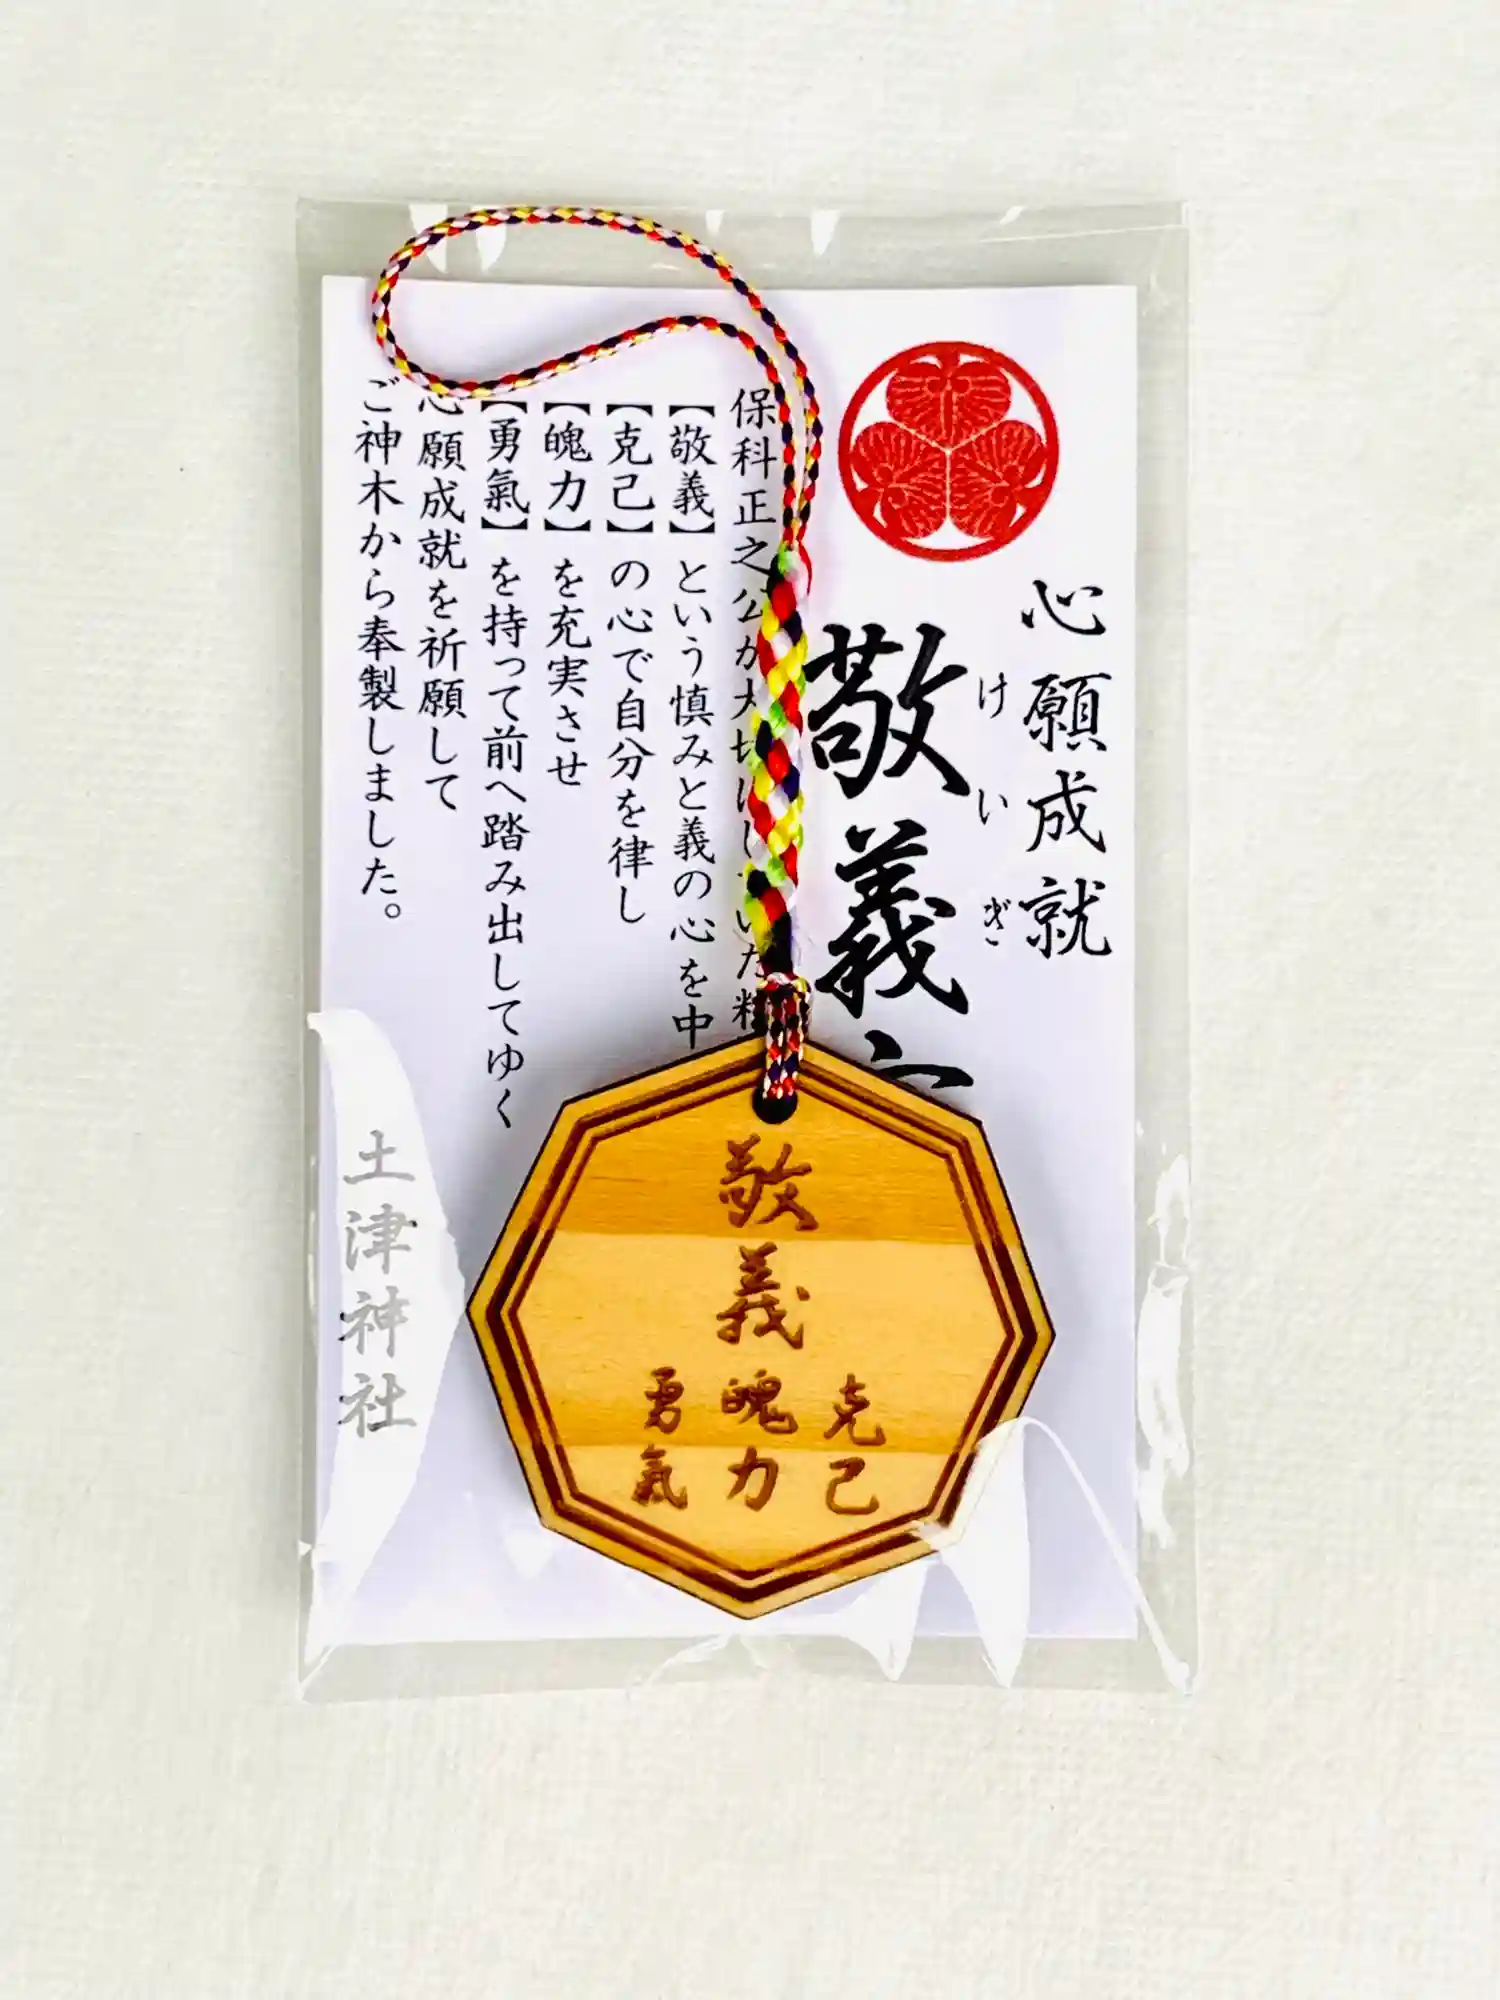 心願成就
敬義
けいぎ
保科正之公が大切にしていた精
【敬義】という慎みと義の心を中
【克己】の心で自分を律し
【魄力】を充実させ
【勇氣】を持って前へ踏み出してゆく
心願成就を祈願して
ご神木から奉製しました。
土津神社
敬義
克己
魄力
勇氣